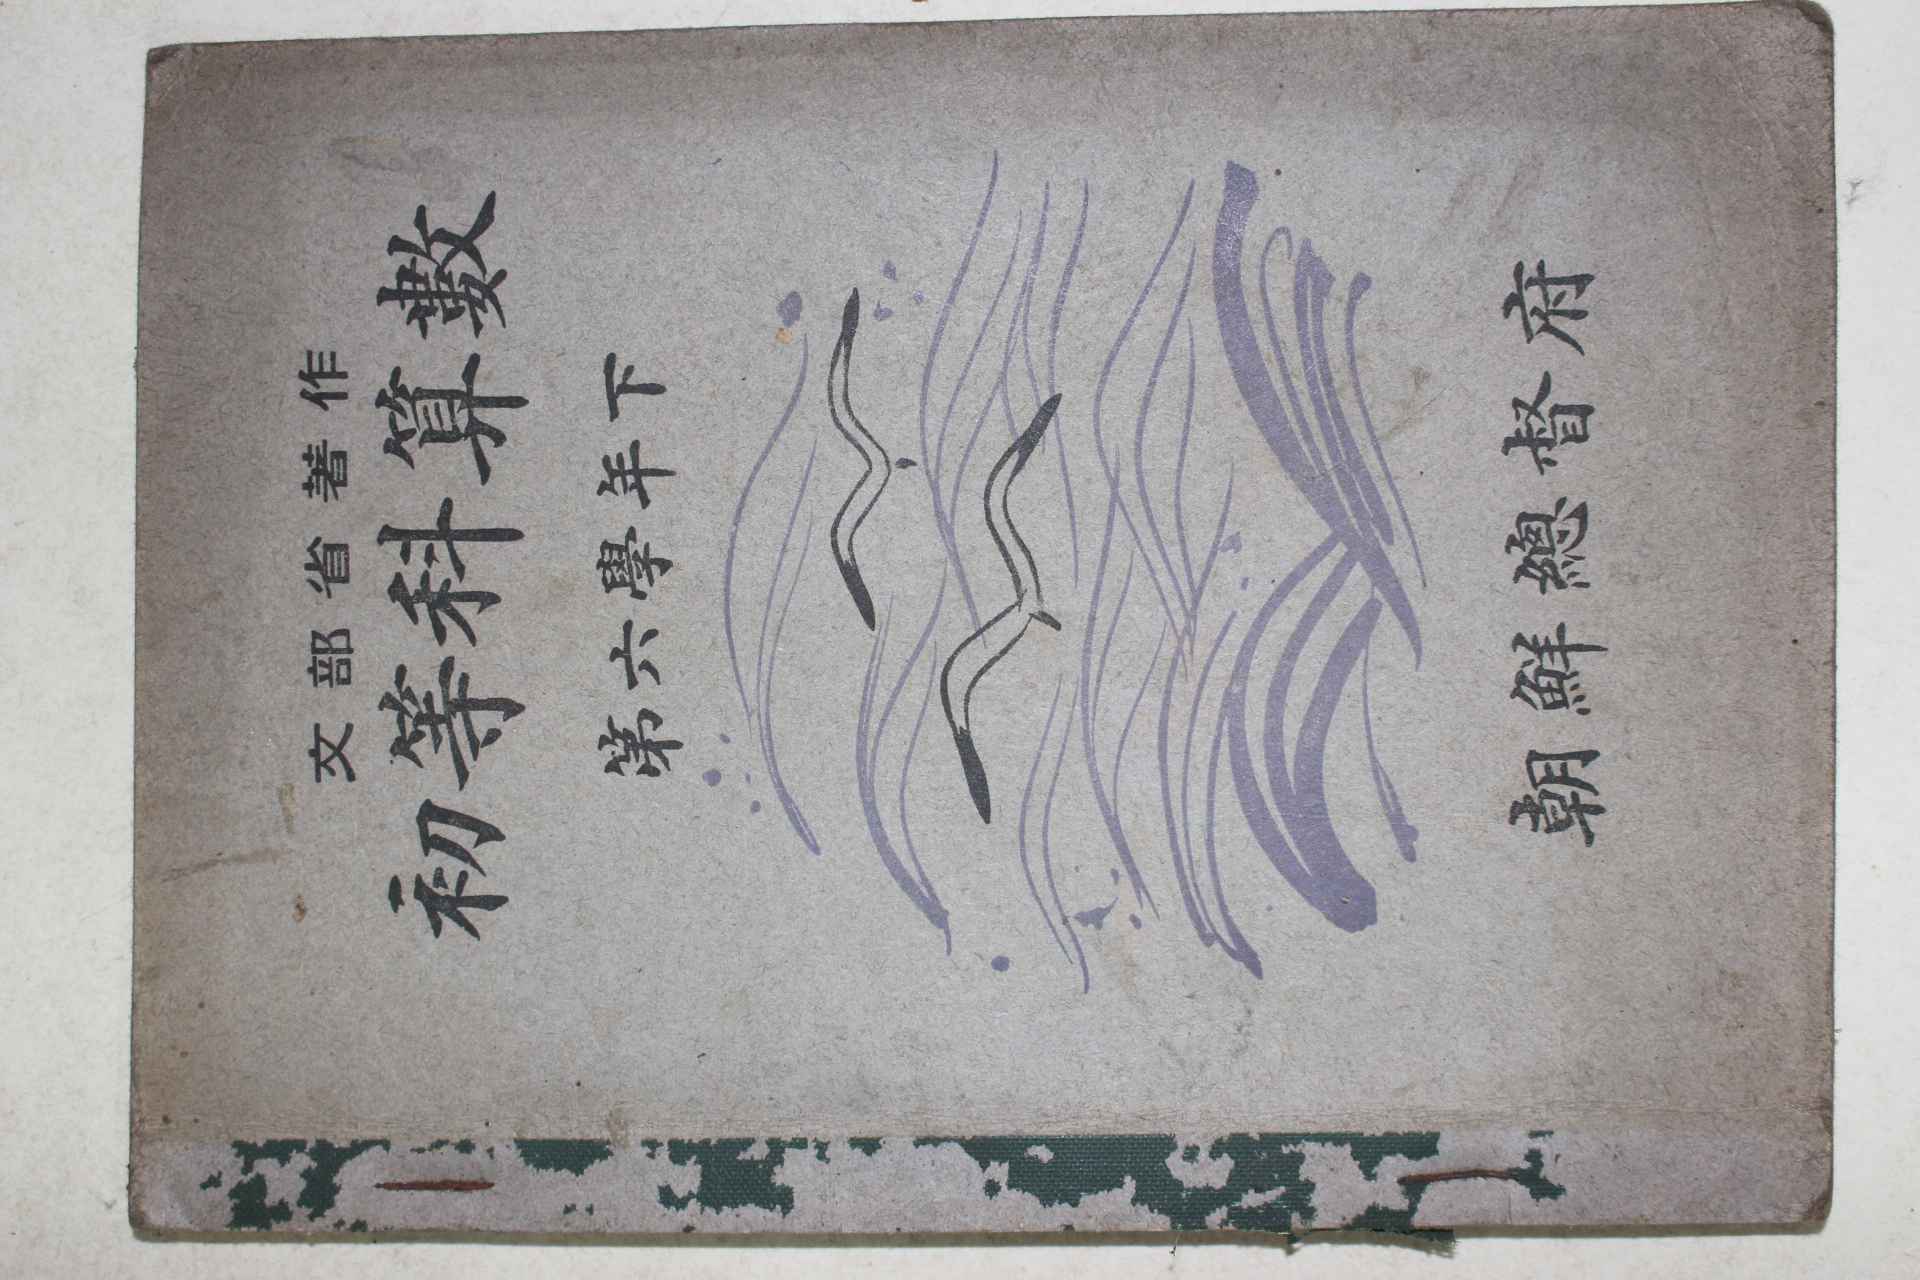 文部省著作
初等科算數
第六學年下
朝鮮總督府